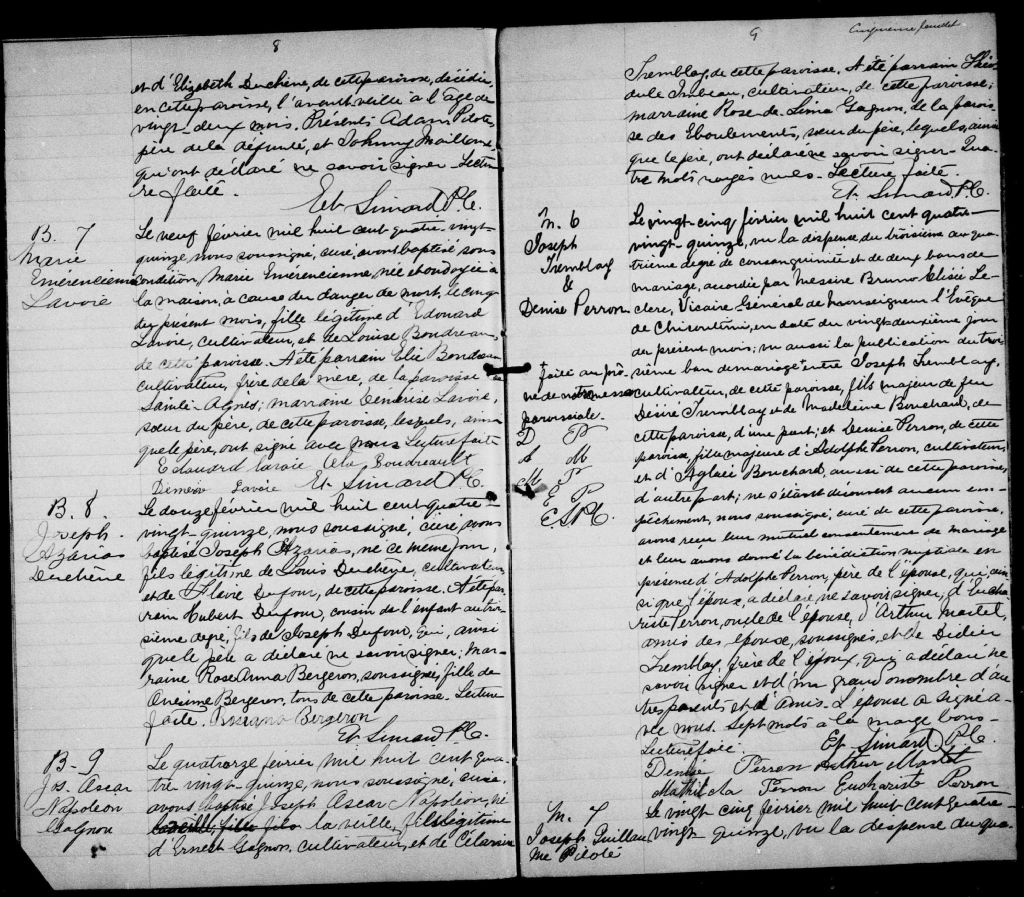 8
et d'Elizabeth Duchêne, de cette paroisse, décédée
en cette paroisse, l'avant veille à l'âge de
vingt-deux mois. Présents Adam Pilote,
père de la défunte, et Johnny Maillou,
qui ont déclaré ne savoir signer - Lectu
re faite.
Et. Simard Ptr.
B. 7
Marie
Emérencienne
Lavoie
Le neuf février mil huit cent quatre-vingt-
quinze nous soussigné, curé, avons baptisé sous
condition, Marie Emérencienne, née et ondoyée à
la maison, à cause du danger de mort, le cinq
du présent mois, fille légitime d'Edouard
Lavoie, cultivateur, et de Louise Boudreau,
de cette paroisse. A été parrain Elie Boudreau
cultivateur, frère de la mère, de la paroisse de
Sainte-Agnès; marraine Lavoie,
sœur du père, de cette paroisse, lesquels, ainsi
que le père, ont signé avec nous Lecture faite
Edouard Lavoie Elie Boudreault
Lavoie Et Simard Ptr.
B. 8.
Joseph.
Azarias
Duchêne
Le douze février mil huit cent quatre-
vingt-quinze, nous soussigné, curé, avons
baptisé Joseph Azarias, né ce même jour,
fils légitime de Louis Duchêne, cultivateur
et de Flavie Dufour, de cette paroisse. A été par
rain Hubert Dufour, cousin de l'enfant au troi-
sième degré, fils de Joseph Dufour, qui, ainsi
que le père a déclaré ne savoir signer; mar-
raine Rose Anna Bergeron, soussignée, fille de
Onésime Bergeron, tous de cette paroisse. Lecture
faite. Roseanna Bergeron
Et Simard Ptr.
B-9
Jos. Ascar
Napoléon
Gagnon
Le quatorze février mil huit cent qua
tre vingt-quinze, nous soussigné, curé,
avons baptisé Joseph Ascar Napoléon, né
la veille, fils la veille, fils légitime
d'Ernest Gagnon, cultivateur, et de Célanire
9
Cinquième feuillet
Tremblay, de cette paroisse. A été parrain Théo
dule Imbeau, cultivateur, de cette paroisse;
marraine Rose-de-Lima Gagnon, de la parois-
se des Eboulements, sœur du père, lesquels, ainsi
que le père, ont déclaré ne savoir signer - Qua-
tre mots rayés nuls - Lecture faite.
Et Simard Ptr.
M. 6
Joseph
Tremblay
&
Denise Perron
+ faite au prô-
ne de notre messe
paroissiale.
D P
A M
M P
E P
E S Ptr.
Le vingt-cinq février mil huit cent quatre-
vingt-quinze, vu la dispense du troisième au qua-
trième degré de consanguinité et de deux bans de
mariage, accordée par Messire Bruno Elisée Le-
clerc, Vicaire-Général de Monseigneur l'Evêque
de Chicoutimi, en date du vingt-deuxième jour
du présent mois; vu aussi la publication du troi-
sième ban de mariage + entre Joseph Tremblay,
cultivateur, de cette paroisse, fils majeur de feu
Désiré Tremblay et de Madeleine Bouchard, de
cette paroisse, d'une part; et Denise Perron, de cette
paroisse, fille majeure d'Adolphe Perron, cultivateur,
et d'Aglaée Bouchard, aussi de cette paroisse,
d'autre part; ne s'étant découvert aucun em-
pêchement, nous soussigné, curé de cette paroisse,
avons reçu leur mutuel consentement de mariage
et leur avons donné la bénédiction nuptiale en
présence d'Adolphe Perron, père de l'épouse, qui, ain
si que l'époux, a déclaré ne savoir signer, d'Eucha-
riste Perron, oncle de l'épouse, d'Arthur Martel,
amis des époux, soussignés, et de Didier
Tremblay, frère de l'époux, qui a déclaré ne
savoir signer et d'un grand nombre d'au
tres parents et d'amis. L'épouse a signé a-
vec nous. Sept mots à la marge bons-
Lecture faite. Et Simard Ptr.
Denise Perron Arthur Martel
Mathilda Perron Euchariste Perron
M. 7
Joseph Guillau
me Pilote
Le vingt cinq février mil huit cent quatre-
vingt quinze, vu la dispense du qua-